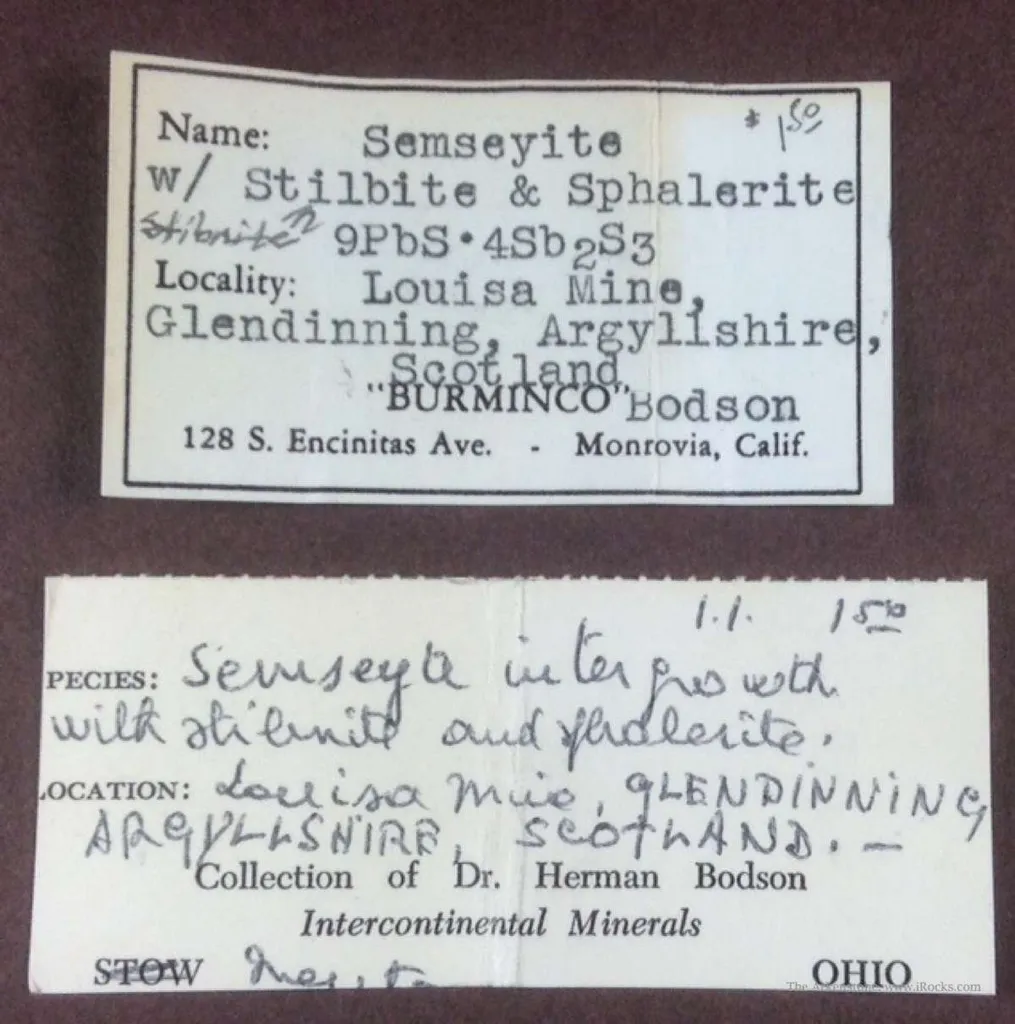 * 1.50
Name: Semseyite
W/ Stilbite & Sphalerite
Stibnite? 9PbS·4Sb2S3
Locality: Louisa Mine,
Glendinning, Argyllshire,
Scotland
"BURMINCO" Bodson
128 S. Encinitas Ave. - Monrovia, Calif.
1.1. 1 50
PECIES: Semseyte intergrowth
with stibnite and sphalerite.
LOCATION: Louisa Mine, GLENDINNING
ARGYLLSHIRE, SCOTLAND. —
Collection of Dr. Herman Bodson
Intercontinental Minerals
STOW OHIO